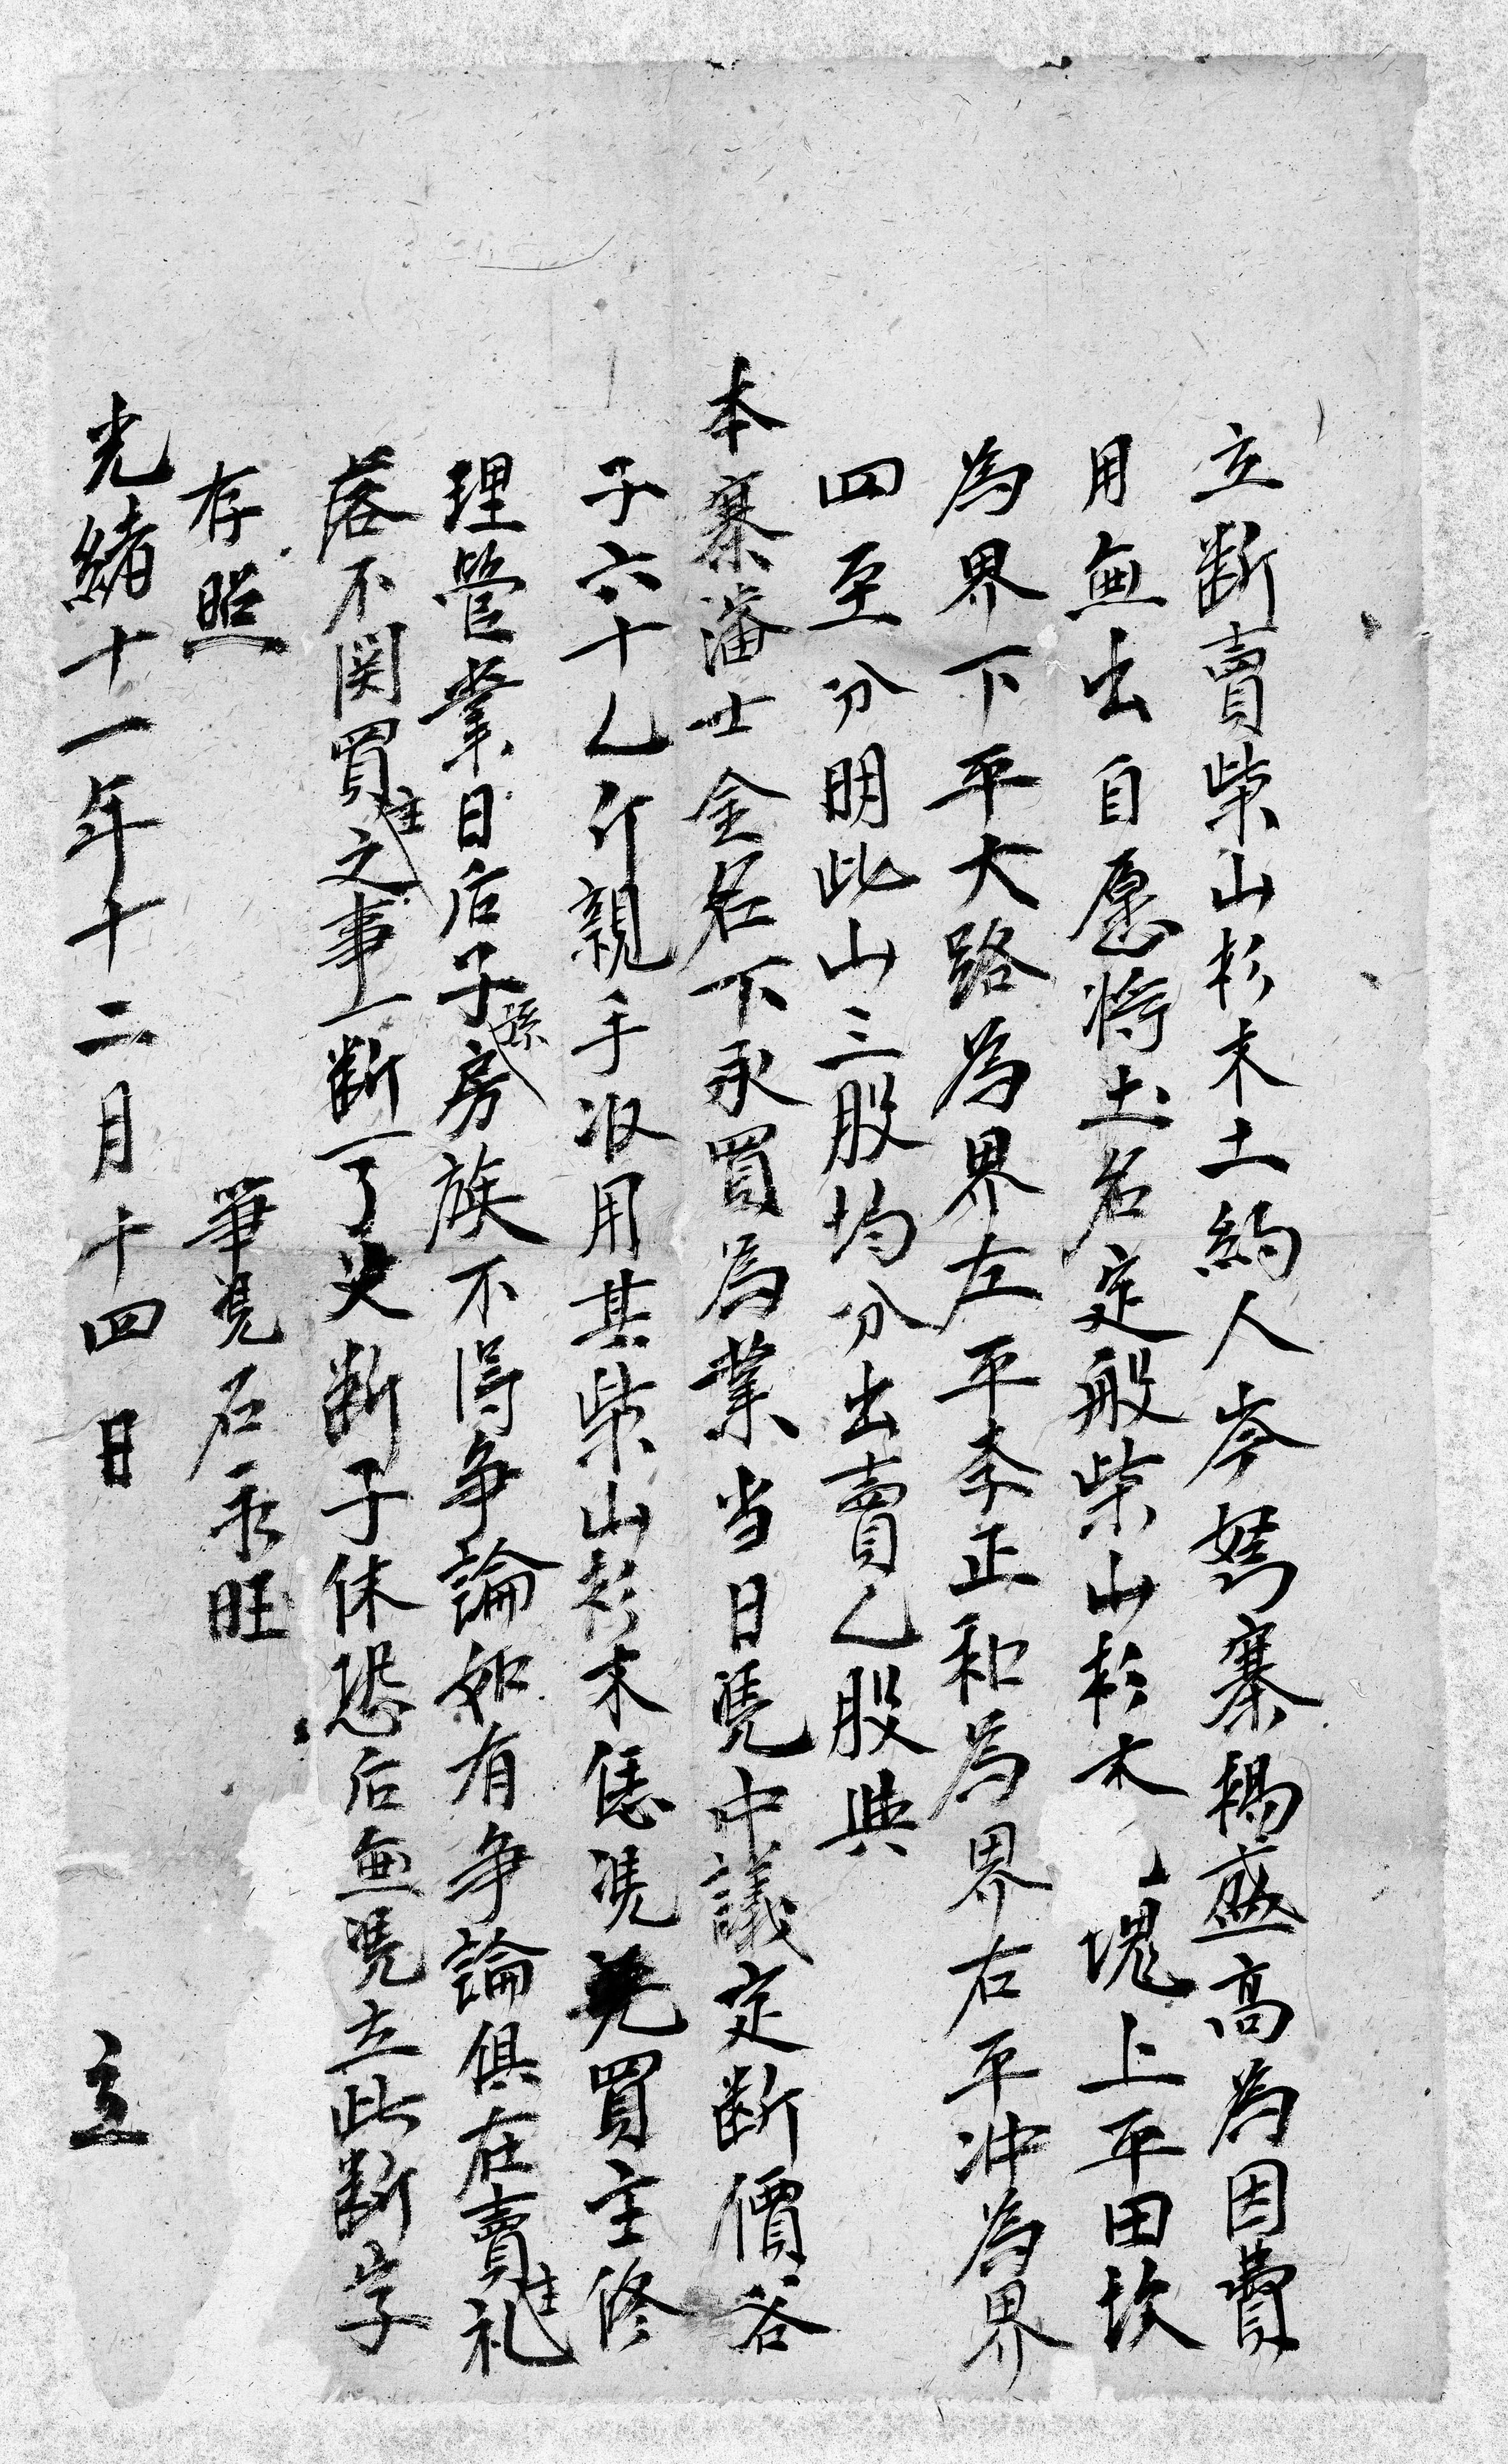 立断賣柴山杉木土約人岑努寨楊盛高為因費
用無出自愿将土名定般柴山杉木塊上平田坎
為界下平大路為界左平李正和為界右平冲為界
四至分明此山三股均分出賣乙股與
本寨潘士金名下承買為業当日凴中議定断價谷
子六十乙斤親手収用其柴山杉木恁凴買主修
理管業日后子孫房族不得争論如有争論俱在賣主礼
落不関買主之事一断一了父断子休恐后無凴立此断字
存照
筆凴石永旺
光緒十一年十二月十四日 立